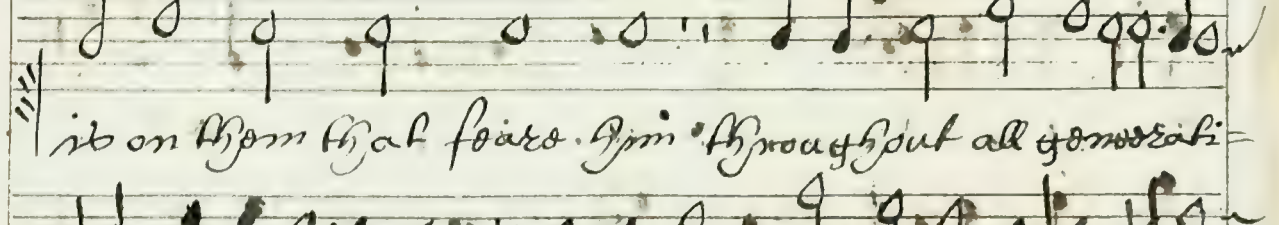 is on them that feare him throughout all generati=